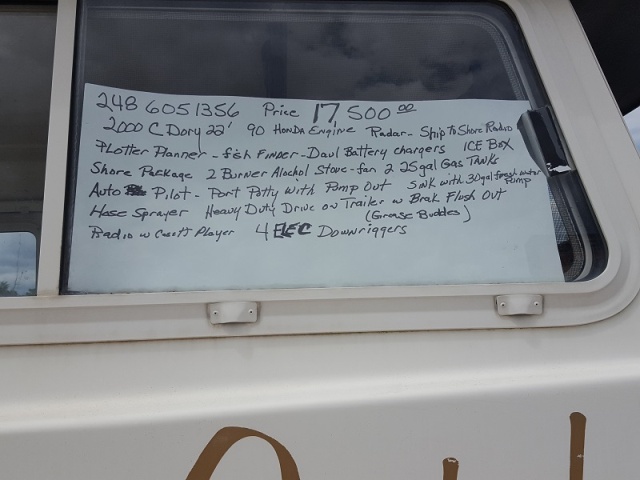 248 6051356 Price 17,500.00
2000 C Dory 22' 90 HONDA Engine Radar- Ship to Shore Radio
PLotter Planner - fish FINDER - Daul Battery chargers ICE BOX
Shore Package 2 Burner Alochol Stove - fan 2 25gal Gas TANKS
Auto Pilot - Port Potty with Pump Out Sink with 30gal fresh water Pump
Hose Sprayer Heavy Duty Drive on Trailer w Brak Flush Out
(Grease Buddes)
Radio w Casett Player 4 ELEC Downriggers